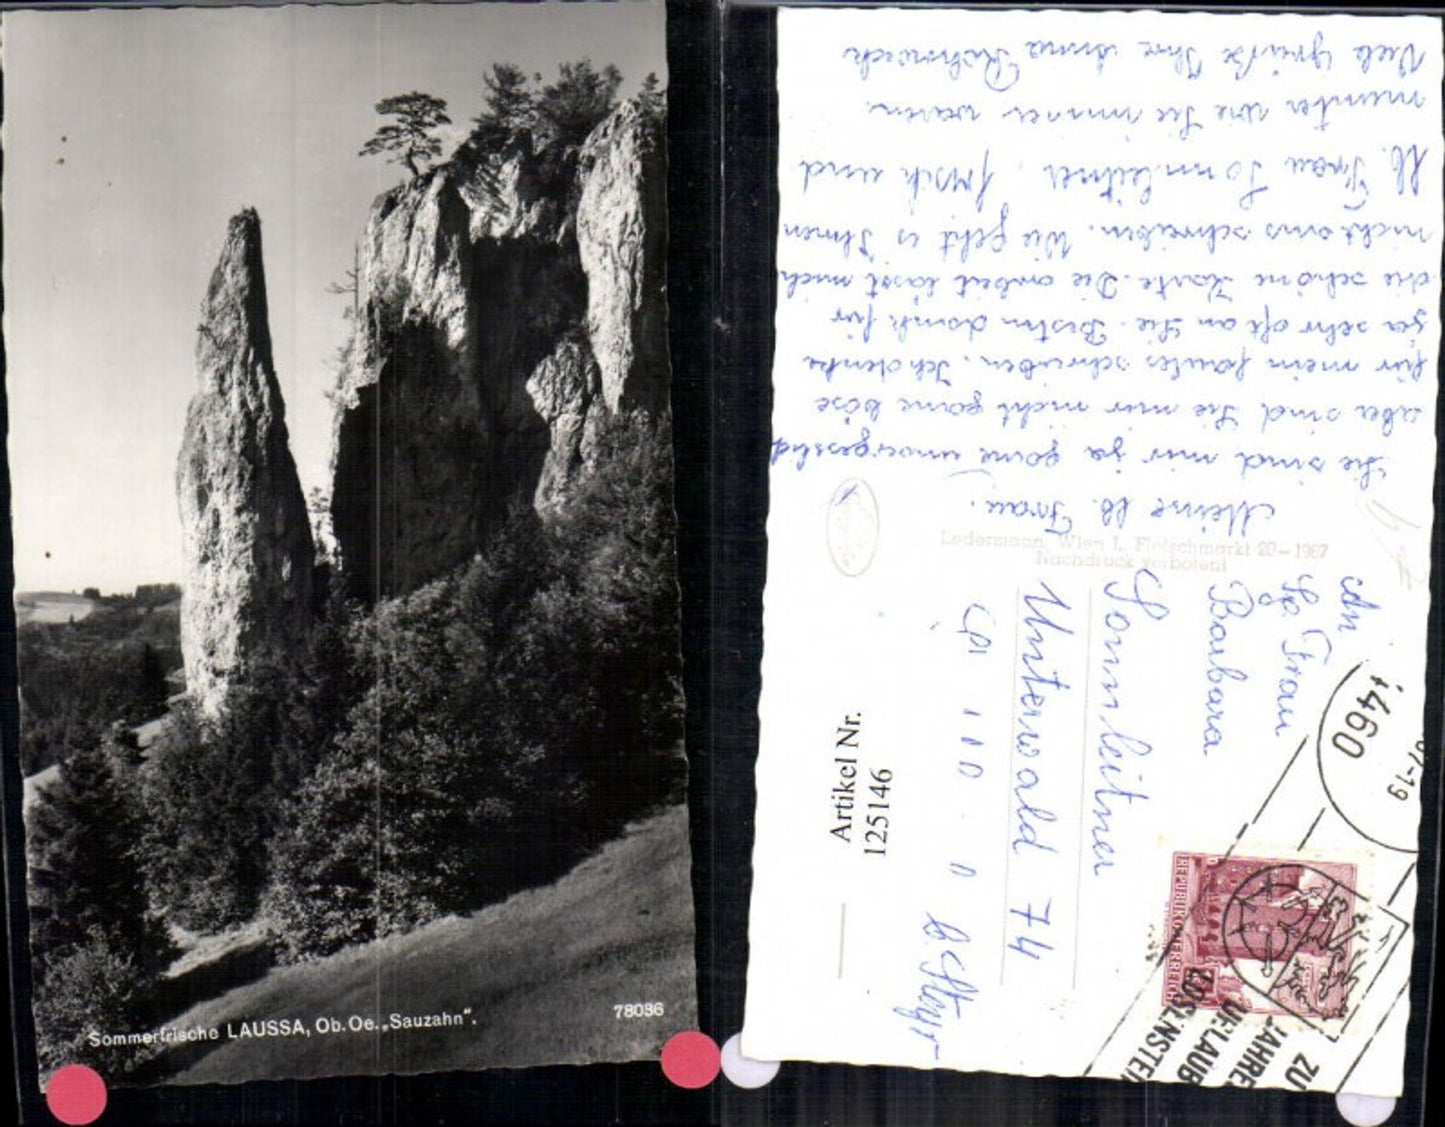 Sommerfrische LAUSSA, Ob.Oe. „Sauzahn".
78036
Meine lb. Frau.
Sie sind mir ja gane unvorgesslich
aber sind Sie mir nicht gane böse
für mein faules schreiben. Ich denke
ja sehr oft an Sie. Besten dank für
die schöne Karte. Die arbeit lässt mich
nicht ans schreiben. Wie geht es Ihnen
lb. Frau Sonnleitner, frisch und
munter wie Sie immer waren.
Viele Grüße Ihre Anna
Ledermann, Wien I., Fleischmarkt 20–1967
Nachdruck verboten!
An
Frau
Barbara
Sonnleitner
Unterwald 74
b. Steyr
Artikel Nr.
125146
4460
-19
REPUBLIK ÖSTERREICH
ZU
JAHRE
URLAUB
LOSENSTEIN